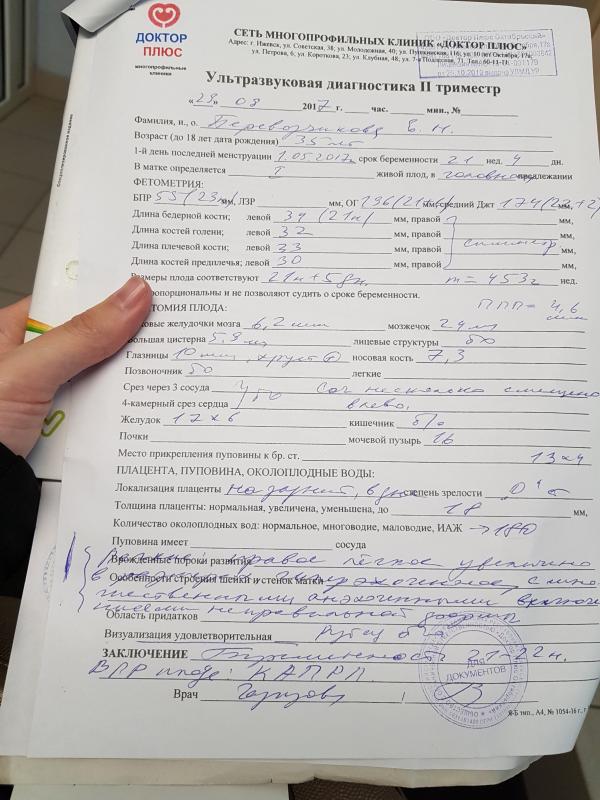 ДОКТОР
ПЛЮС
многопрофильные
клиники
СЕТЬ МНОГОПРОФИЛЬНЫХ КЛИНИК «ДОКТОР ПЛЮС»
Адрес: г. Ижевск, ул. Советская, 38; ул. Молодежная, 40; ул. Пушкинская, 116; ул. 10 лет Октября, 17а
ул. Петрова, 6, ул. Короткова, 23; ул. Клубная, 48; ул. 7-я Подлесная, 71.
Ультразвуковая диагностика II триместр
«29» 08 2017 г. час. мин., №
Фамилия, и., о. Перевозчикова Е. Н.
Возраст (до 18 лет дата рождения) 35 лет
1-й день последней менструации 1.05.2017г срок беременности 21 нед. 4 дн.
В матке определяется I живой плод, в головном предлежании
ФЕТОМЕТРИЯ:
БПР 55 (23н) мм, ЛЗР мм, ОГ 196 (21н) мм, средний Джт 174 (22+2) мм,
Длина бедерной кости; левой 39 (21н) мм, правой мм,
Длина костей голени; левой 32 мм, правой симметр мм,
Длина плечевой кости; левой 33 мм, правой мм,
Длина костей предплечья; левой 30 мм, правой мм.
Размеры плода соответствуют 21н + 5дн. m = 453г нед.
пропорциональны и не позволяют судить о сроке беременности.
ППП = 4,6 мм
АНАТОМИЯ ПЛОДА:
желудочки мозга 6,2 мм мозжечок 24 м
Большая цистерна 5,8 м лицевые структуры б/о
Глазницы 10 мм, хруст ⊕ носовая кость 7,3
Позвоночник б/о легкие
Срез через 3 сосуда Сог несколько смещено
4-камерный срез сердца влево.
Желудок 12х6 кишечник б/о
Почки мочевой пузырь 16
Место прикрепления пуповины к бр. ст. 13х4
ПЛАЦЕНТА, ПУПОВИНА, ОКОЛОПЛОДНЫЕ ВОДЫ:
Локализация плаценты по задней, в дне степень зрелости 0
Толщина плаценты: нормальная, увеличена, уменьшена, до 18 мм,
Количество околоплодных вод: нормальное, многоводие, маловодие, ИАЖ → 180
Пуповина имеет сосуда
Врожденные пороки развития правое лёгкое увеличено
Особенности строения шейки и стенок матки гиперэхогенное, с мно-
жественными анэхогенными включе-
ниями неправильной формы
Область придатков
Визуализация удовлетворительная Рубец б/о
ЗАКЛЮЧЕНИЕ Беременность 21-22н.
ВПР плода: КАПРЛ
Врач
ДЛЯ ДОКУМЕНТОВ
тип., А4, № 1054-16 г.